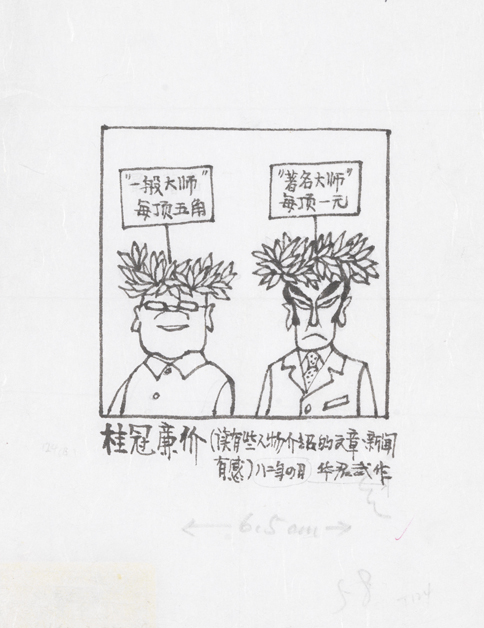 “一般大师”
每顶五角
“著名大师”
每顶一元
桂冠廉价 (读有些人物介绍的文章、新闻
有感) 八二年四月 华君武作
6.5 cm
58